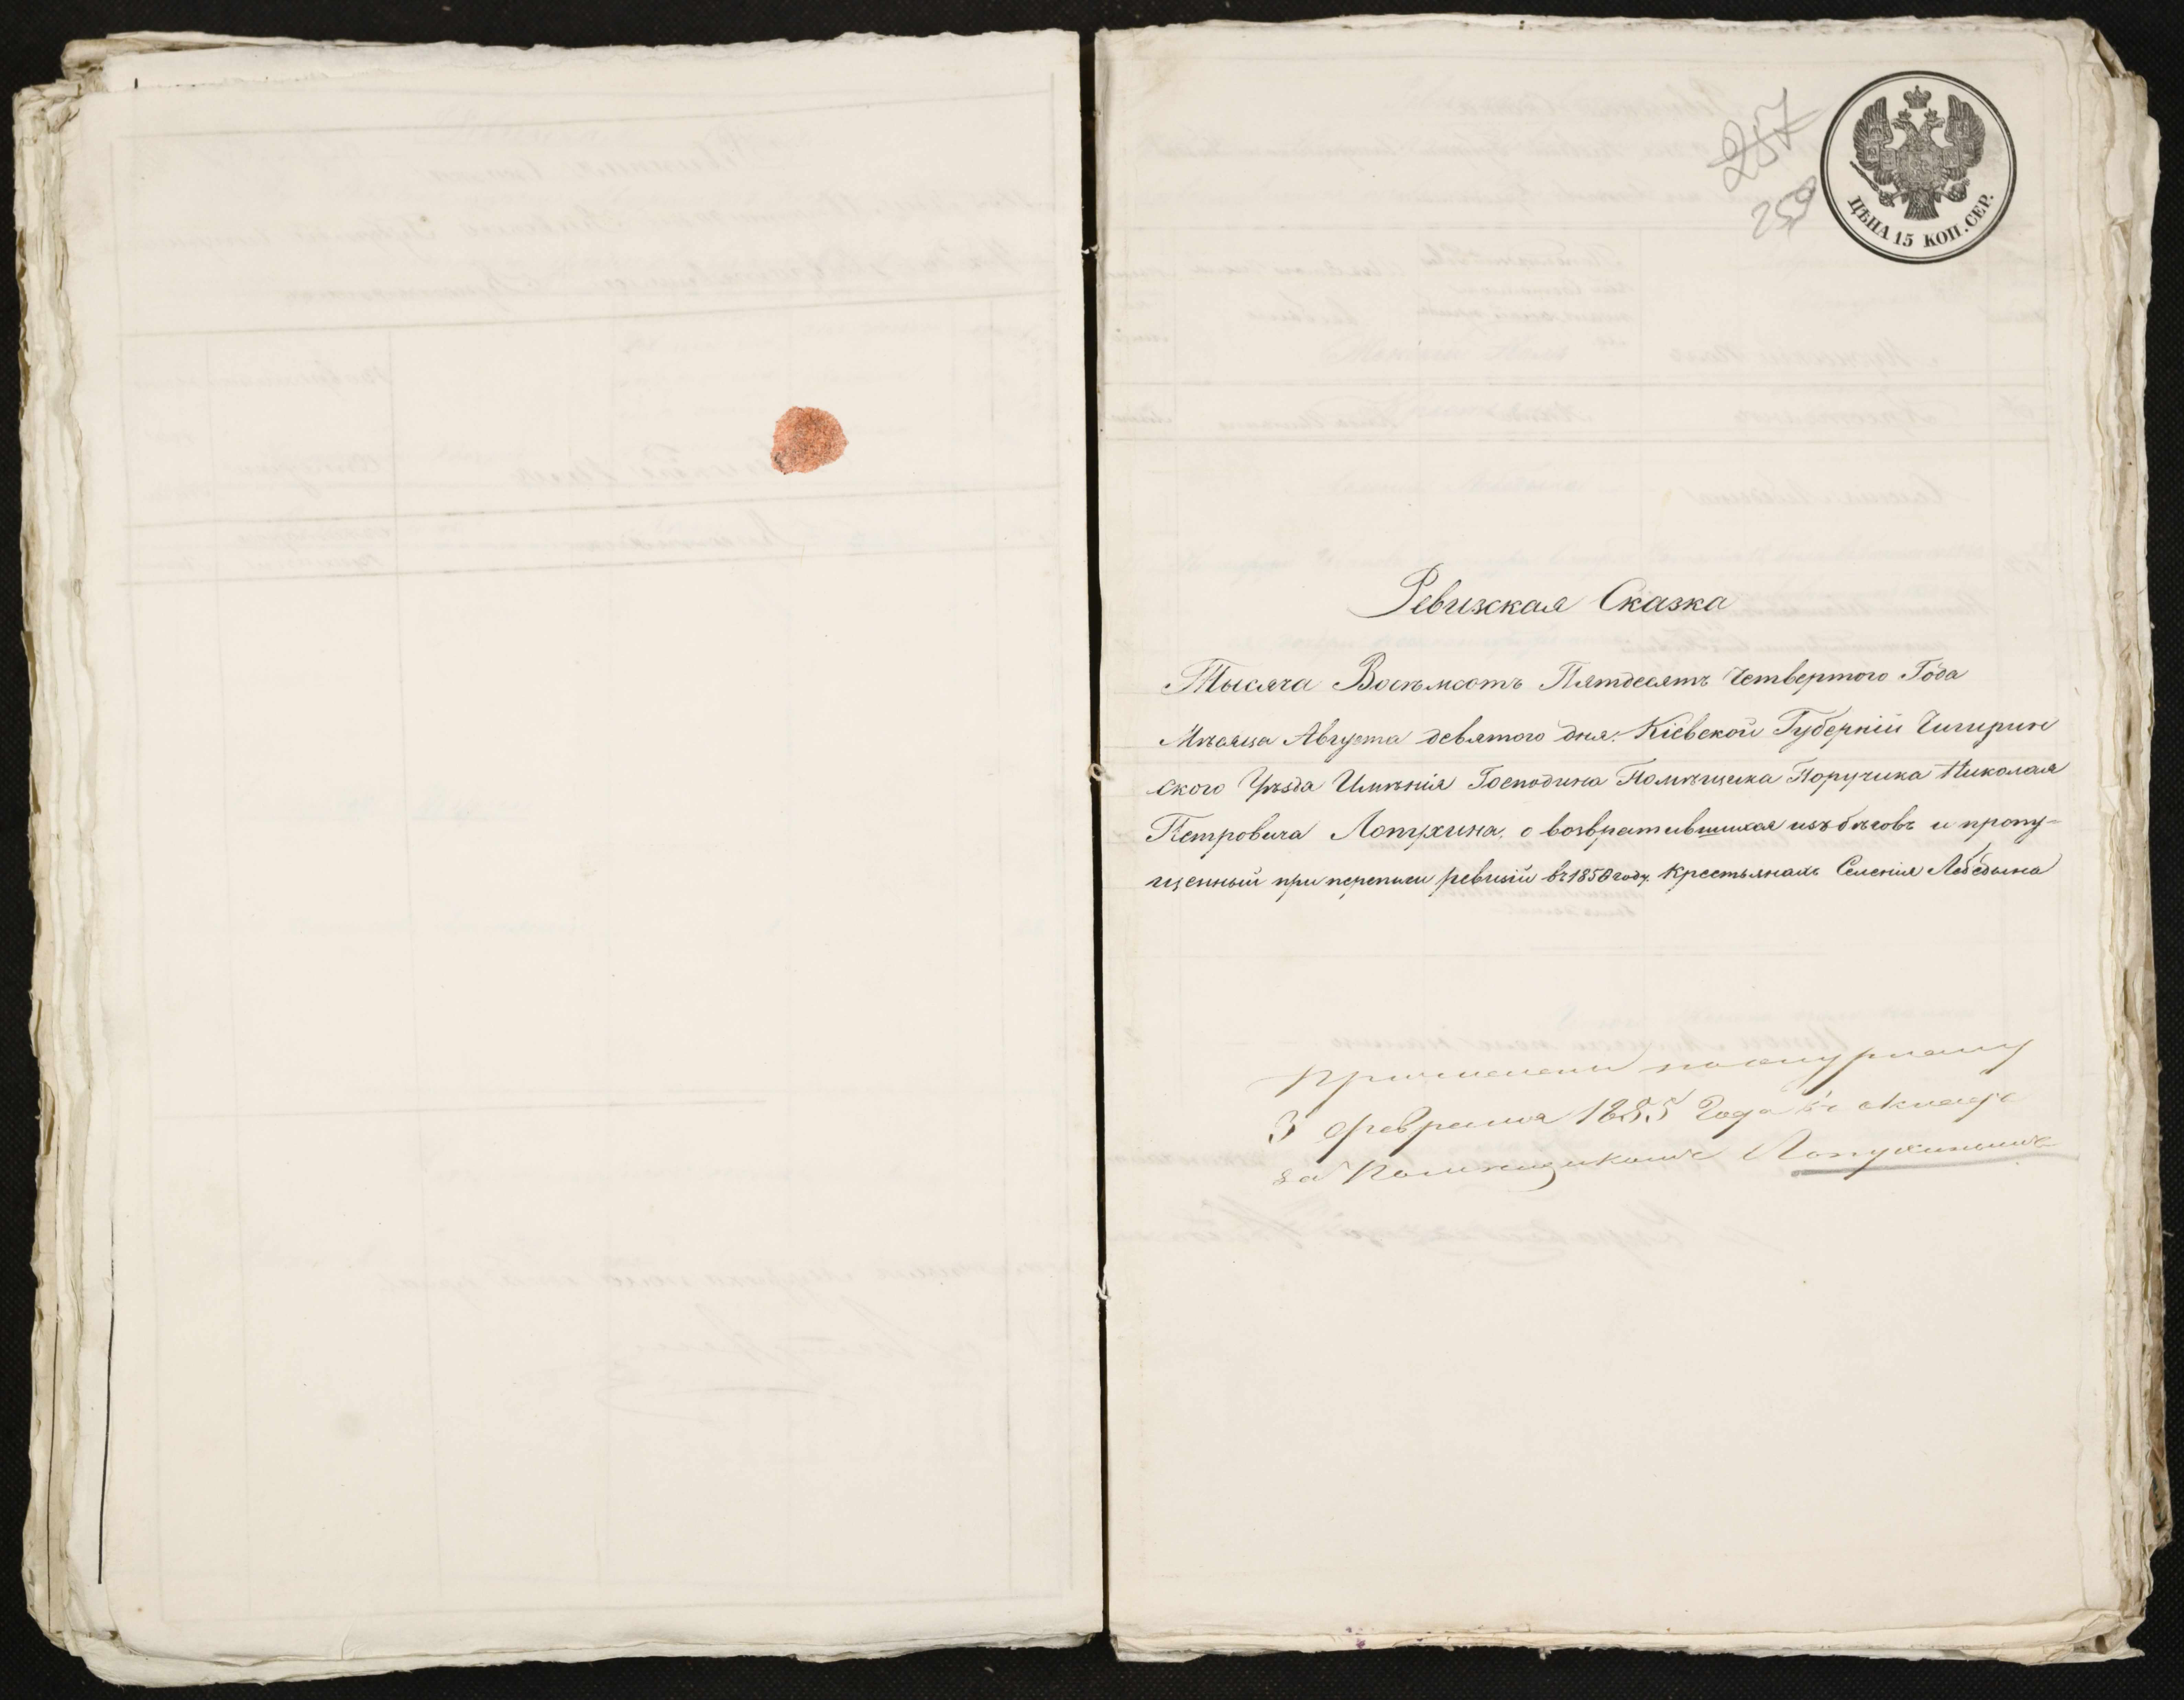 257
259
ЦѢНА 15 КОП. СЕР.
Ревизская Сказка
Тысяча Восемсотъ Пятдесятъ Четвертого Года
Мѣсяца Августа девятого дня. Кіевской Губерніи Чигирин
ского Уѣзда Имѣнія Господина Помѣщика Поручика Николая
Петровича Лопухина, о возвратившихся изъ бѣговъ и пропу-
щенный при переписи ревизіи въ 1850 году. Крестьянахъ Селенія Лебедына
3 февраля 1855 Года въ окладе
за Помѣщикомъ Лопухинымъ